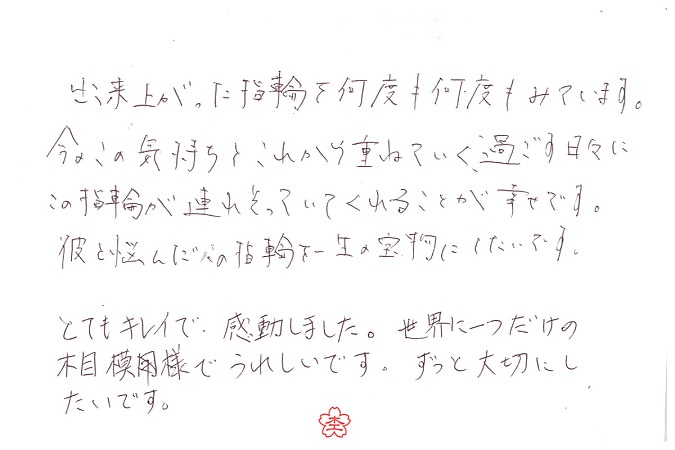 出来上がった指輪を何度も何度もみています。
今のこの気持ちとこれから重ねていく過ごす日々に
この指輪が連れそっていてくれることが幸せです。
彼と悩んだこの指輪を一生の宝物にしたいです。
とてもキレイで感動しました。世界に一つだけの
木目模用様でうれしいです。ずっと大切にし
たいです。